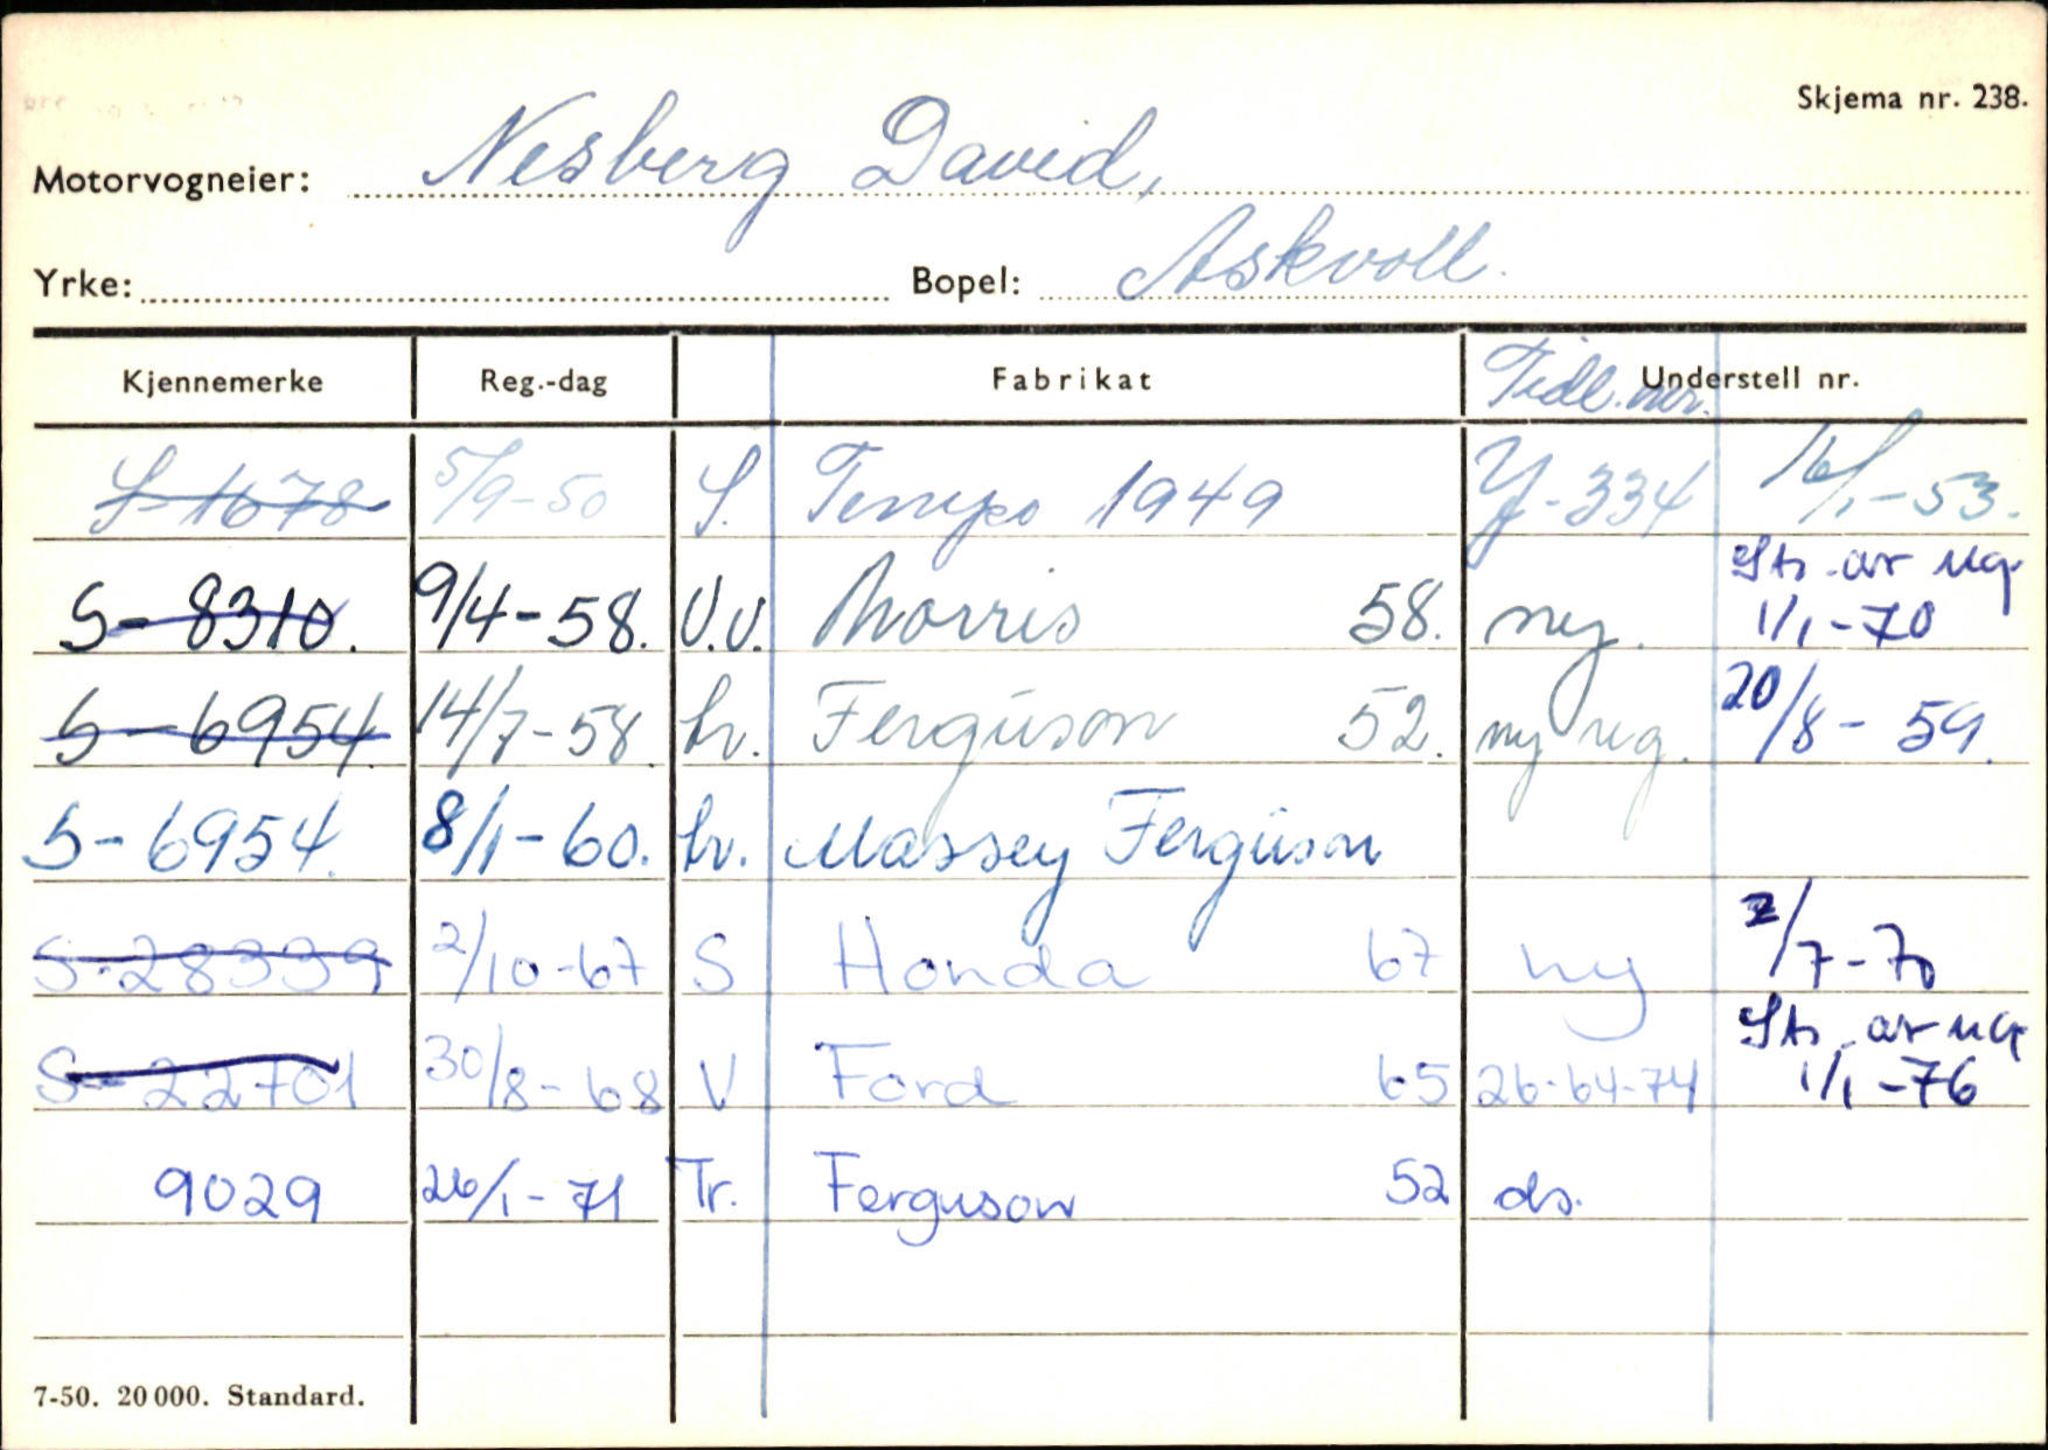 Skjema nr. 238.
Motorvogneier: Nesberg David,
Yrke: Bopel: Askvoll.
Kjennemerke Reg.-dag Fabrikat Tidl. nr. Understell nr.
S-1678 5/9-50 S. Tempo 1949 Y-334 16/1-53.
S-8310. 9/4-58. V.v. Morris 58. ny. Str. av reg. 1/1-70
S-6954. 14/7-58. Tr. Ferguson 52. ny reg. 20/8-59.
S-6954. 8/1-60. Tr. Massey Ferguson
S-28339 2/10-67 S Honda 67 ny 2/7-70
S-22701 30/8-68 V Ford 65 26-64-74 Str. av reg 1/1-76
9029 26/1-71 Tr. Ferguson 52 ds.
7-50. 20 000. Standard.